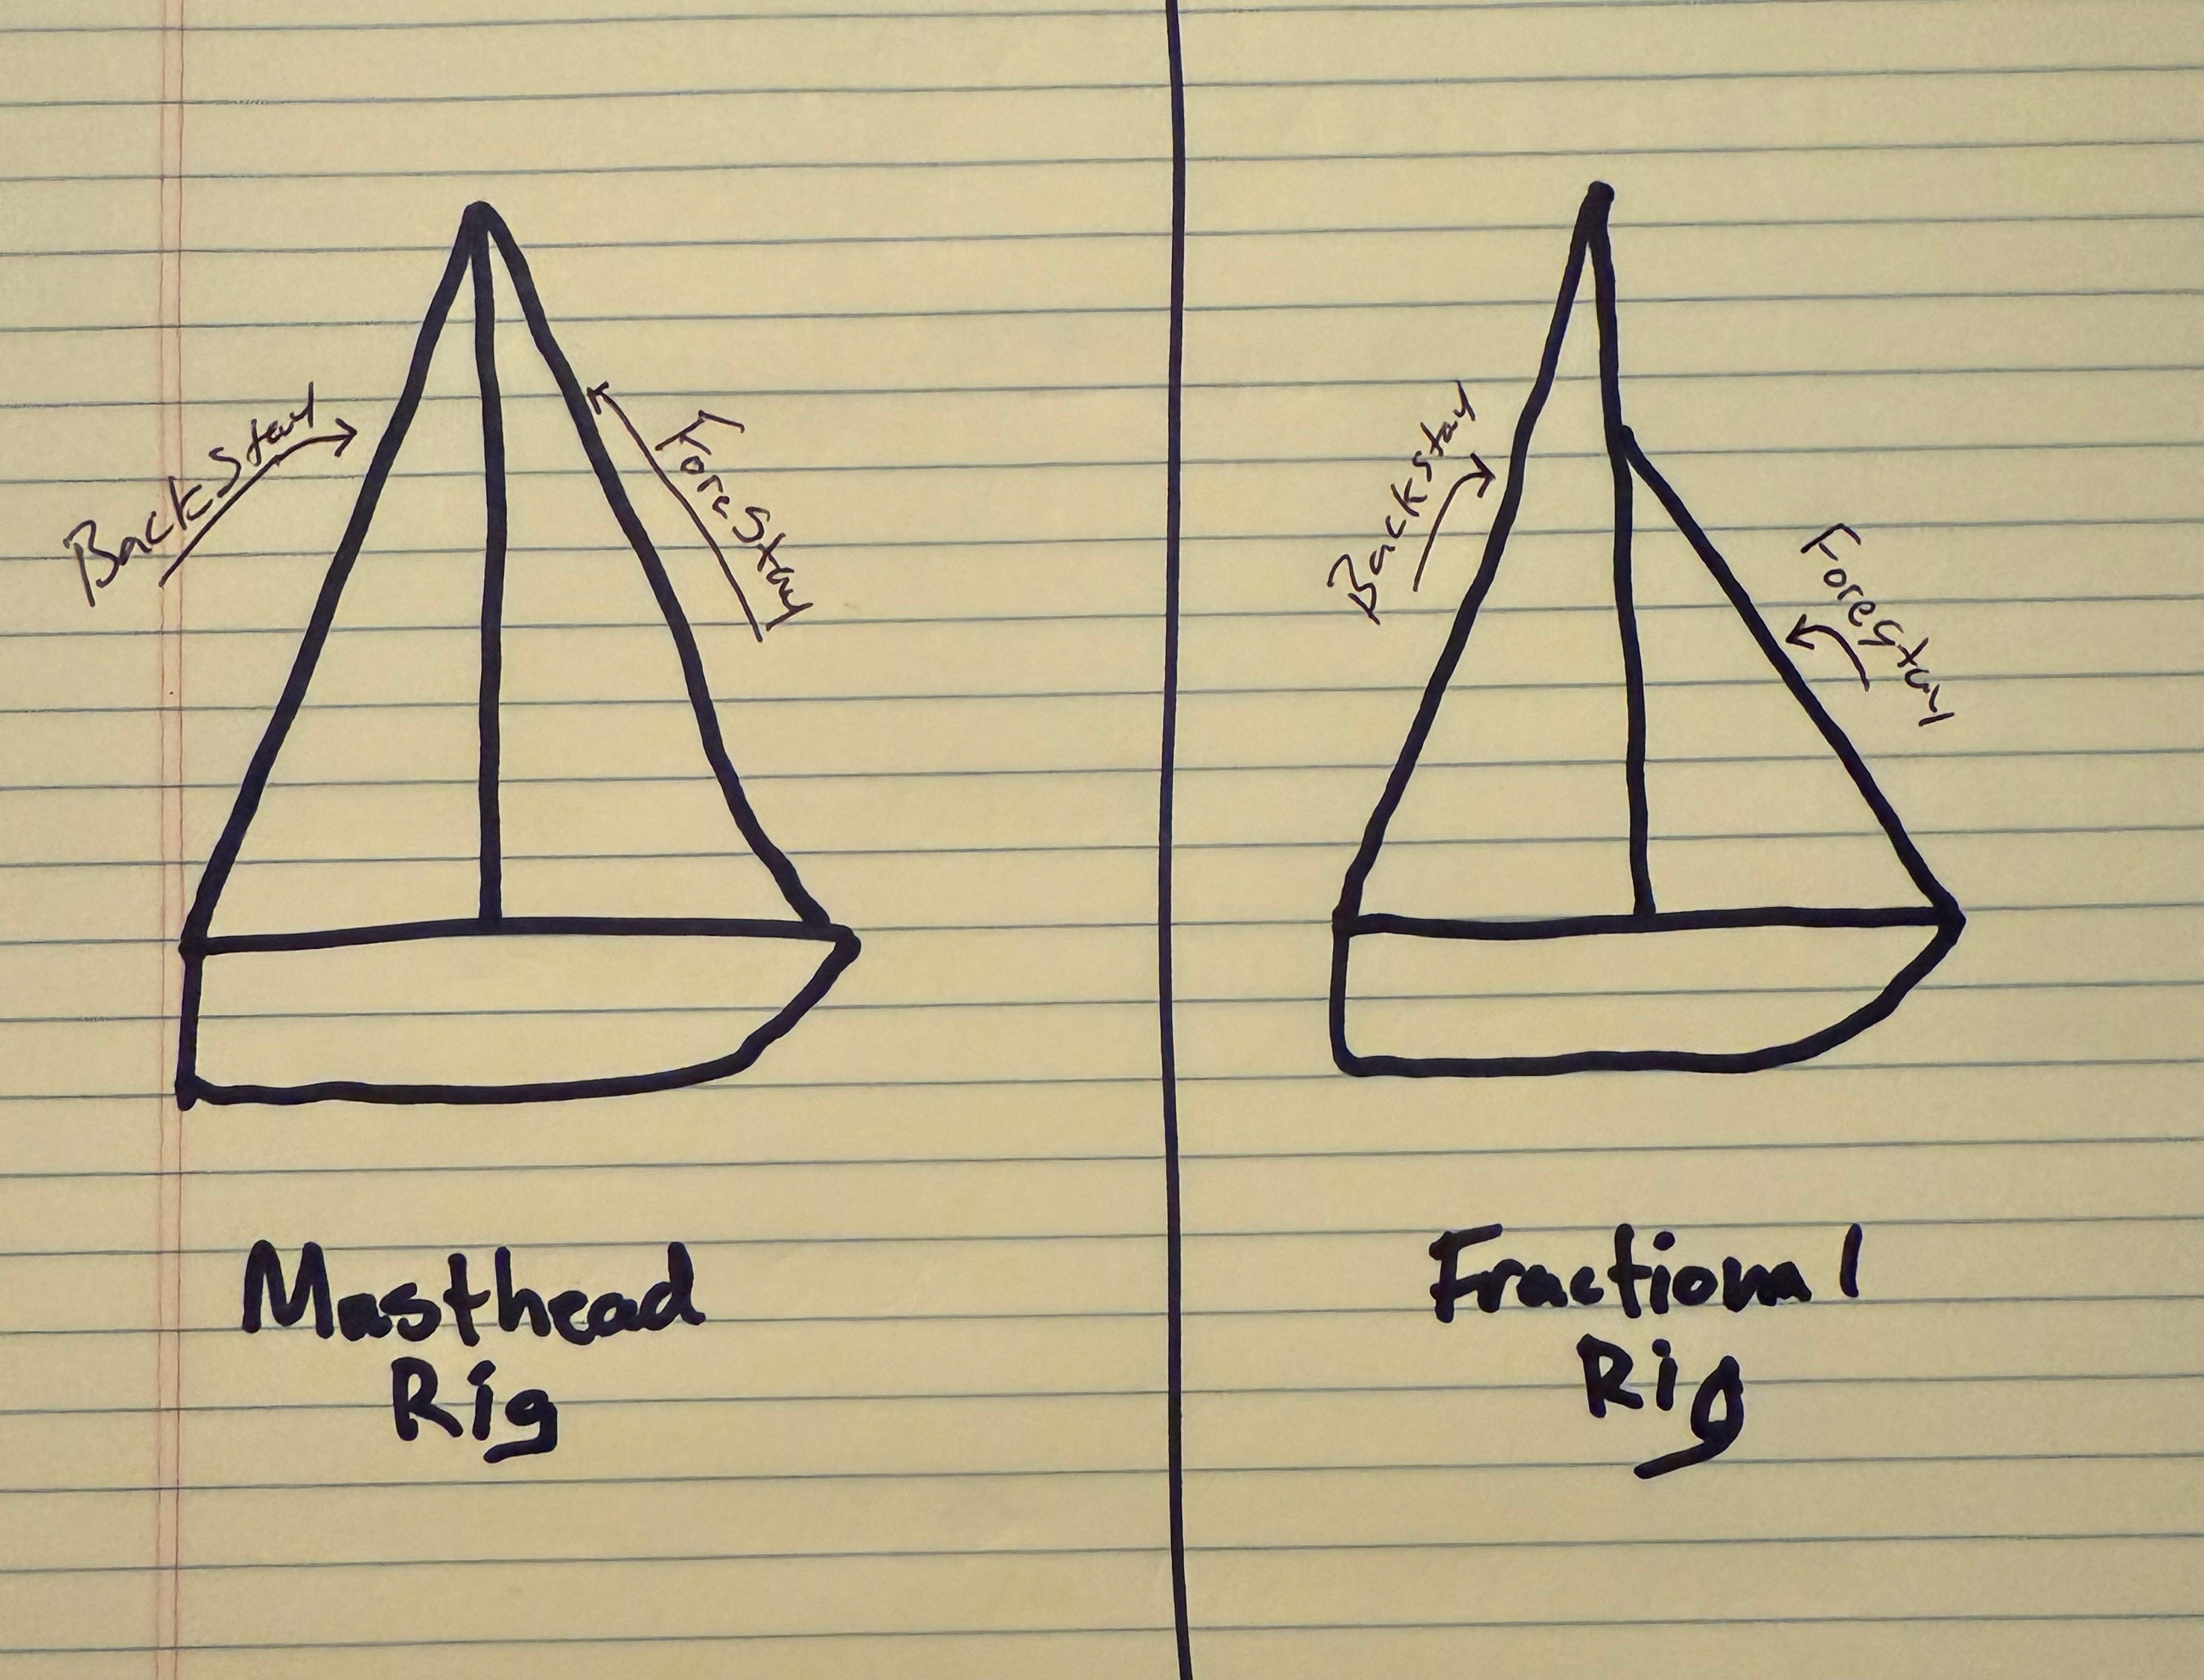 Backstay
Forestay
Masthead
Rig
Backstay
Forestay
Fractional
Rig